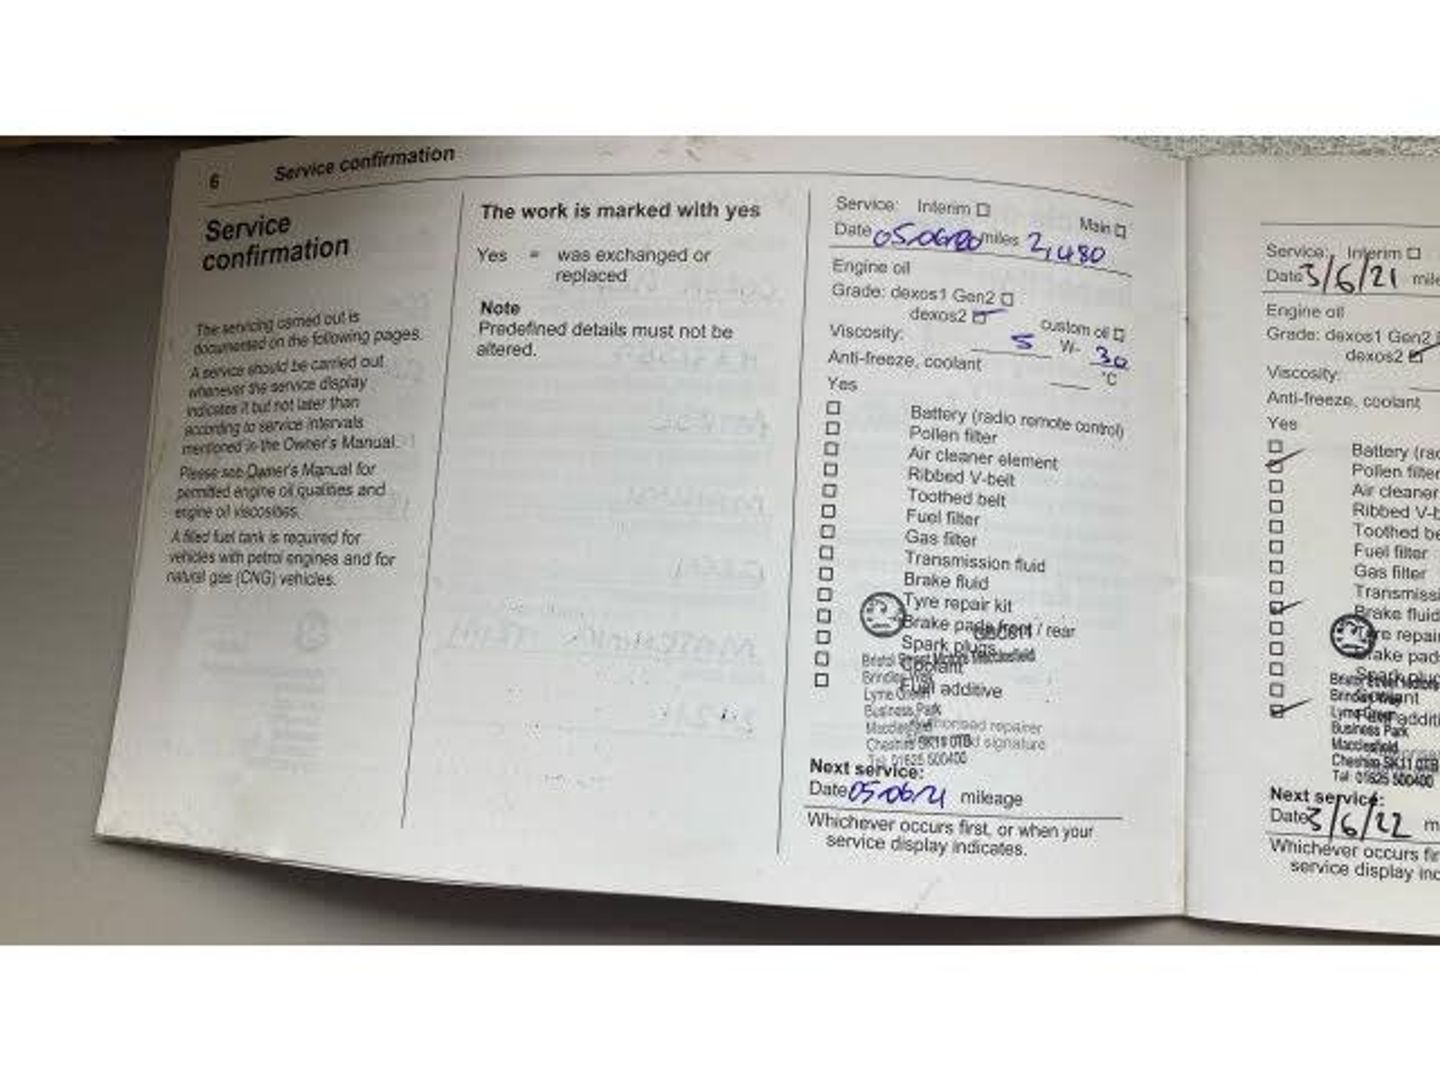 6 Service confirmation
Service
confirmation
The servicing carried out is
documented on the following pages.
A service should be carried out
whenever the service display
indicates it but not later than
according to service intervals
mentioned in the Owner's Manual.
Please see Owner's Manual for
permitted engine oil qualities and
engine oil viscosities.
A filled fuel tank is required for
vehicles with petrol engines and for
natural gas (CNG) vehicles.
The work is marked with yes
Yes = was exchanged or
replaced
Note
Predefined details must not be
altered.
Service: Interim Main
Date 05.06.20 miles 2,480
Engine oil
Grade: dexos1 Gen2
dexos2 custom oil
Viscosity: 5 W- 30
Anti-freeze, coolant °C
Yes
Battery (radio remote control)
Pollen filter
Air cleaner element
Ribbed V-belt
Toothed belt
Fuel filter
Gas filter
Transmission fluid
Brake fluid
Tyre repair kit
Brake pads front / rear
Spark plugs
Bristol Street Motors Macclesfield
Coolant
Brindley Way
Fuel additive
Lyme Green
Business Park
Macclesfield
Authorised repairer
Cheshire SK11 0TB
signature
Tel: 01625 500400
Next service:
Date 05/06/21 mileage
Whichever occurs first, or when your
service display indicates.
Service: Interim
Date 3/6/21
Engine oil
Grade: dexos1 Gen2
dexos2
Viscosity:
Anti-freeze, coolant
Yes
Battery
Pollen filter
Air cleaner
Ribbed
Toothed
Fuel filter
Gas filter
Brake fluid
Bristol Street Motors
Brindley Way
Lyme Green
Business Park
Macclesfield
Cheshire SK11 0TB
Tel: 01625 500400
Next service:
Date 3/6/22
Whichever occurs
service display